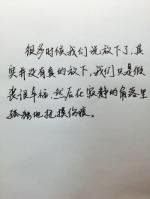 很多时候我们说放下了,其
实并没有真的放下,我们只是假
装很幸福,然后在寂静的角落里
孤独地抚摸伤痕。